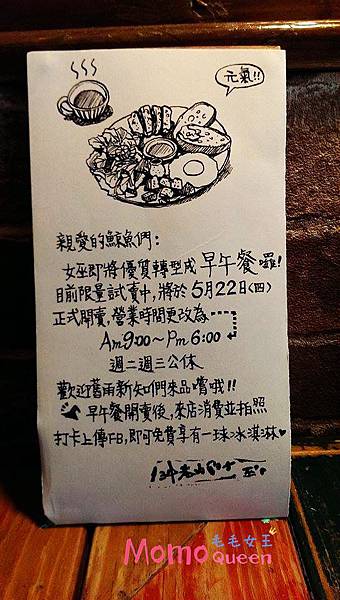 元氣!!
親愛的鯨魚們：
女巫即將優質轉型成早午餐囉!
目前限量試賣中，將於5月22日(四)
正式開賣，營業時間更改為
Am9:00~Pm6:00
週二週三公休
歡迎舊雨新知們來品嚐哦!!
早午餐開賣後，來店消費並拍照
打卡上傳FB，即可免費享有一球冰淇淋♥
毛毛女王
Momo Queen